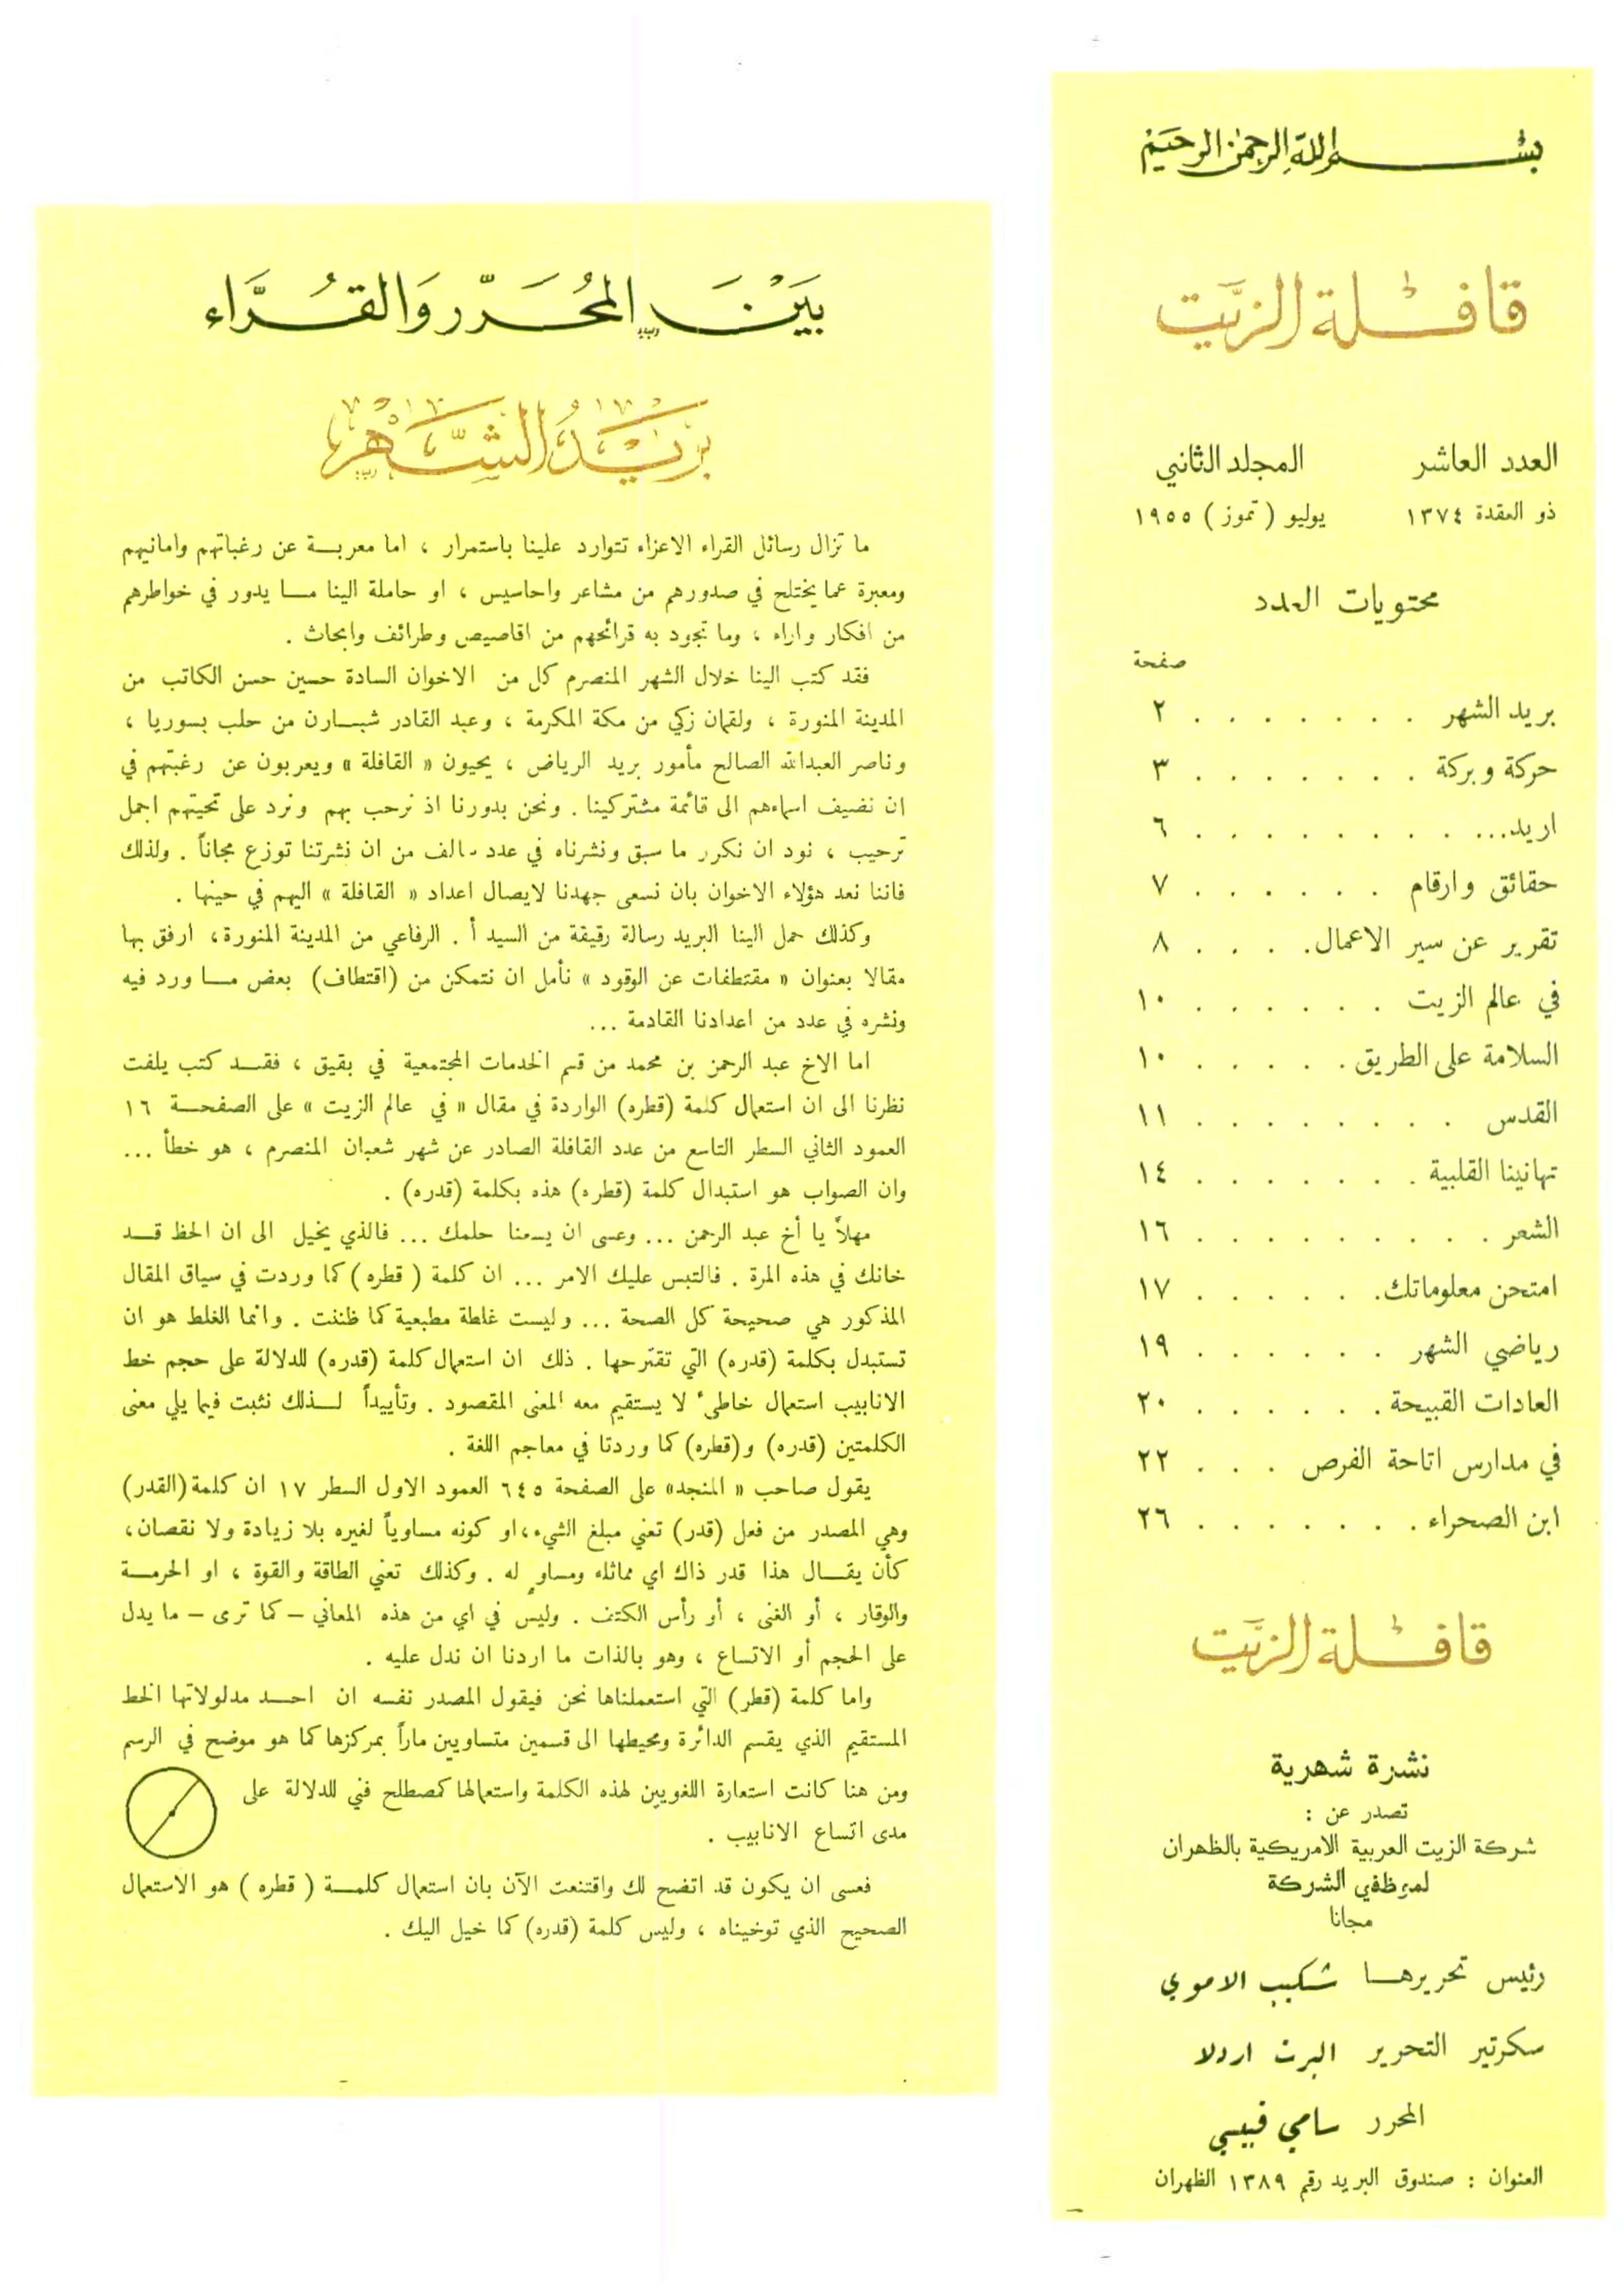 بسم الله الرحمن الرحيم
قافلة الزيت
العدد العاشر المجلد الثاني
ذو القعدة ١٣٧٤ يوليو ( تموز ) ١٩٥٥
محتويات العدد
صفحة
بريد الشهر . . . . . . . ٢
حركة وبركة . . . . . . . ٣
اريد... . . . . . . . . ٦
حقائق وارقام . . . . . . ٧
تقرير عن سير الاعمال. . . . ٨
في عالم الزيت . . . . . . ١٠
السلامة على الطريق . . . . . ١٠
القدس . . . . . . . . ١١
تهانينا القلبية . . . . . . . ١٤
الشعر . . . . . . . . . ١٦
امتحن معلوماتك. . . . . . ١٧
رياضي الشهر . . . . . . ١٩
العادات القبيحة . . . . . . ٢٠
في مدارس اتاحة الفرص . . . ٢٢
ابن الصحراء . . . . . . . ٢٦
قافلة الزيت
نشرة شهرية
تصدر عن :
شركة الزيت العربية الامريكية بالظهران
لموظفي الشركة
مجانا
رئيس تحريرها شكيب الاموي
سكرتير التحرير البرت اردلا
المحرر سامي قبيسي
العنوان : صندوق البريد رقم ١٣٨٩ الظهران
بَيْنَ المُحَرّر وَالقُرَّاء
بَريدُ الشَّهر
ما تزال رسائل القراء الاعزاء تتوارد علينا باستمرار ، اما معربة عن رغباتهم وامانيهم
ومعبرة عما يختلج في صدورهم من مشاعر واحاسيس ، او حاملة الينا ما يدور في خواطرهم
من افكار واراء ، وما تجود به قرائحهم من اقاصيص وطرائف وابحاث .
فقد كتب الينا خلال الشهر المنصرم كل من الاخوان السادة حسين حسن الكاتب من
المدينة المنورة ، ولقمان زكي من مكة المكرمة ، وعبد القادر شبارن من حلب بسوريا ،
وناصر العبدالله الصالح مأمور بريد الرياض ، يحيون « القافلة » ويعربون عن رغبتهم في
ان نضيف اسماءهم الى قائمة مشتركينا . ونحن بدورنا اذ نرحب بهم ونرد على تحيتهم اجمل
ترحيب ، نود ان نكرر ما سبق ونشرناه في عدد سالف من ان نشرتنا توزع مجاناً . ولذلك
فاننا نعد هؤلاء الاخوان بان نسعى جهدنا لايصال اعداد « القافلة » اليهم في حينها .
وكذلك حمل الينا البريد رسالة رقيقة من السيد أ . الرفاعي من المدينة المنورة، ارفق بها
مقالا بعنوان « مقتطفات عن الوقود » نأمل ان نتمكن من (اقتطاف) بعض ما ورد فيه
ونشره في عدد من اعدادنا القادمة ...
اما الاخ عبد الرحمن بن محمد من قسم الخدمات المجتمعية في بقيق ، فقد كتب يلفت
نظرنا الى ان استعمال كلمة (قطره) الواردة في مقال « في عالم الزيت » على الصفحة ١٦
العمود الثاني السطر التاسع من عدد القافلة الصادر عن شهر شعبان المنصرم ، هو خطأ ...
وان الصواب هو استبدال كلمة (قطره) هذه بكلمة (قدره) .
مهلاً يا أخ عبد الرحمن ... وعسى ان يسعنا حلمك ... فالذي يخيل الى ان الحظ قد
خانك في هذه المرة . فالتبس عليك الامر ... ان كلمة ( قطره ) كما وردت في سياق المقال
المذكور هي صحيحة كل الصحة ... وليست غلطة مطبعية كما ظننت . وانما الغلط هو ان
تستبدل بكلمة (قدره) التي تقترحها . ذلك ان استعمال كلمة (قدره) للدلالة على حجم خط
الانابيب استعمال خاطىء لا يستقيم معه المعنى المقصود . وتأييداً لذلك نثبت فيما يلي معنى
الكلمتين (قدره) و(قطره) كما وردتا في معاجم اللغة .
يقول صاحب « المنجد» على الصفحة ٦٤٥ العمود الاول السطر ١٧ ان كلمة (القدر)
وهي المصدر من فعل (قدر) تعني مبلغ الشيء، او كونه مساوياً لغيره بلا زيادة ولا نقصان،
كأن يقال هذا قدر ذاك اي مماثله ومساوٍ له . وكذلك تعني الطاقة والقوة ، او الحرمة
والوقار ، أو الغنى ، أو رأس الكتف . وليس في اي من هذه المعاني – كما ترى – ما يدل
على الحجم أو الاتساع ، وهو بالذات ما اردنا ان ندل عليه .
واما كلمة (قطر) التي استعملناها نحن فيقول المصدر نفسه ان احد مدلولاتها الخط
المستقيم الذي يقسم الدائرة ومحيطها الى قسمين متساويين ماراً بمركزها كما هو موضح في الرسم
ومن هنا كانت استعارة اللغويين لهذه الكلمة واستعمالها كمصطلح فني للدلالة على
مدى اتساع الانابيب .
فعسى ان يكون قد اتضح لك واقتنعت الآن بان استعمال كلمة ( قطره ) هو الاستعمال
الصحيح الذي توخيناه ، وليس كلمة (قدره) كما خيل اليك .